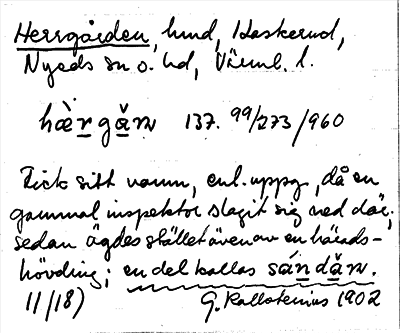 Herrgården, lund, Haskerud,
Nyeds sn o. hd, Värml. l.
hæ̀rgån 137. 99/273/960
Fick sitt namn, enl. uppg., då en
gammal inspektor slagit sig ned där;
sedan ägdes stället även av en härads-
hövding; en del kallas sándån.
11/18) G. Kallstenius 1902